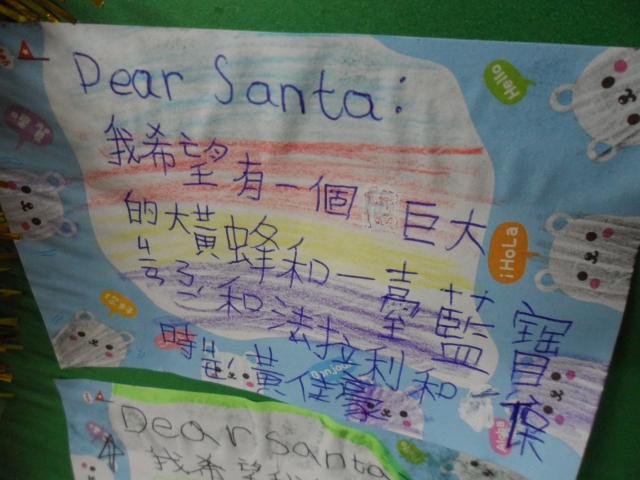 Dear Santa:
我希望有一個巨大
的大黃蜂和一臺藍寶
和法拉利和一
黃佳豪
Hello
¡HoLa
Bonjour
Aloha
Dear santa
我希望